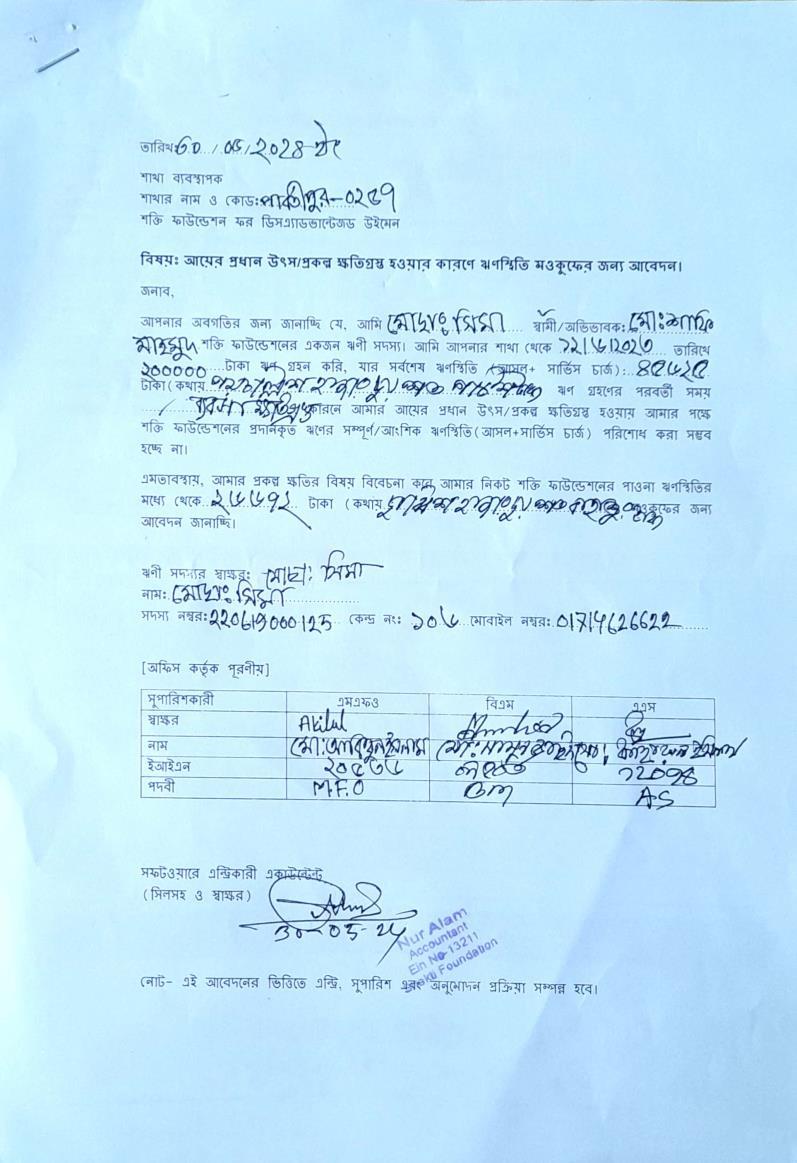 তারিখ ৩০/০৫/২০২৪ ইং
শাখা ব্যবস্থাপক
শাখার নাম ও কোড: পার্বতীপুর-০২৫৭
শক্তি ফাউন্ডেশন ফর ডিসএ্যাডভান্টেজড উইমেন
বিষয়: আয়ের প্রধান উৎস/প্রকল্প ক্ষতিগ্রস্থ হওয়ার কারণে ঋণস্থিতি মওকুফের জন্য আবেদন।
জনাব,
আপনার অবগতির জন্য জানাচ্ছি যে, আমি মোছাঃ সিমা স্বামী/অভিভাবক: মোঃ
মাহমুদ শক্তি ফাউন্ডেশনের একজন ঋণী সদস্য। আমি আপনার শাখা থেকে ১২/৬/২০২৩ তারিখে
২০০০০০ টাকা ঋণ গ্রহন করি, যার সর্বশেষ ঋণস্থিতি (আসল+ সার্ভিস চার্জ): ৪৫২২৫
টাকা (কথায় ঋণ গ্রহণের পরবর্তী সময়
ব্যবসা ক্ষতিগ্রস্থ কারনে আমার আয়ের প্রধান উৎস/প্রকল্প ক্ষতিগ্রস্থ হওয়ায় আমার পক্ষে
শক্তি ফাউন্ডেশনের প্রদানকৃত ঋণের সম্পূর্ণ/আংশিক ঋণস্থিতি (আসল+সার্ভিস চার্জ) পরিশোধ করা সম্ভব
হচ্ছে না।
এমতাবস্থায়, আমার প্রকল্প ক্ষতির বিষয় বিবেচনা করে আমার নিকট শক্তি ফাউন্ডেশনের পাওনা ঋণস্থিতির
মধ্যে থেকে টাকা (কথায় মওকুফের জন্য
আবেদন জানাচ্ছি।
ঋণী সদস্যের স্বাক্ষর: মোছা: সিমা
নাম: মোছাঃ সিমা
সদস্য নম্বর: 220619000125 কেন্দ্র নং: ১০৬ মোবাইল নম্বর: 01714626622
[অফিস কর্তৃক পূরনীয়]
সুপারিশকারী এমএফও বিএম এএস
স্বাক্ষর
নাম মো: আরিফুল ইসলাম
ইআইএন ২০৫৩৬ ১২০৭৪
পদবী M.F.O BM AS
সফটওয়ারে এন্ট্রিকারী একাউন্টেন্ট
(সিলসহ ও স্বাক্ষর)
30-05-24
Nur Alam
Accountant
Ein No-13211
Foundation
নোট- এই আবেদনের ভিত্তিতে এন্ট্রি, সুপারিশ এবং অনুমোদন প্রক্রিয়া সম্পন্ন হবে।